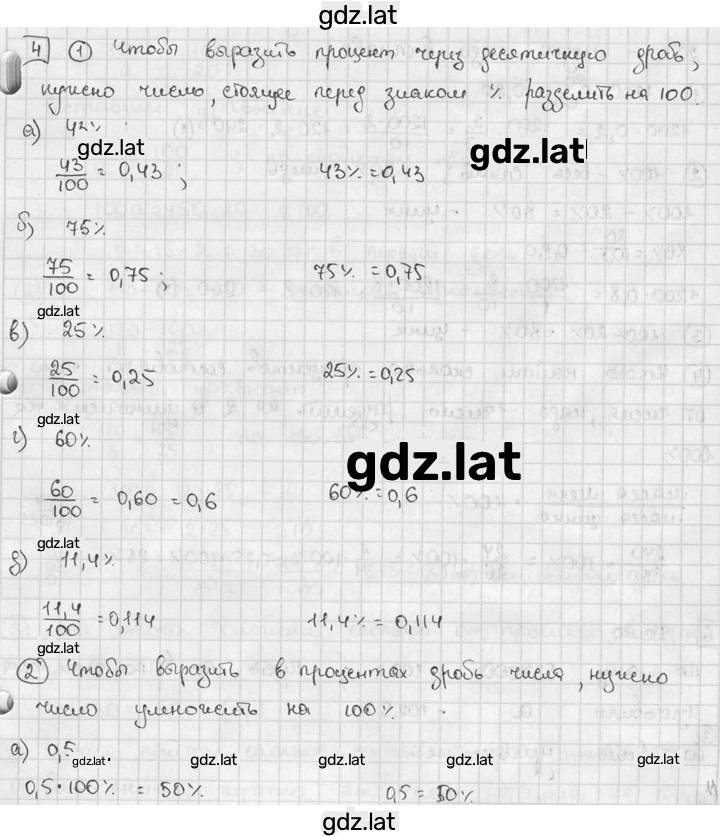 gdz.lat
4 ① Чтобы выразить процент через десятичную дробь,
нужно число, стоящее перед знаком % разделить на 100.
а) 43%
gdz.lat
gdz.lat
43/100 = 0,43 ; 43% = 0,43
б) 75%
75/100 = 0,75 ; 75% = 0,75
gdz.lat
в) 25%
25/100 = 0,25 25% = 0,25
gdz.lat
г) 60%
gdz.lat
60/100 = 0,60 = 0,6 60% = 0,6
gdz.lat
д) 11,4%
11,4/100 = 0,114 11,4% = 0,114
gdz.lat
② Чтобы выразить в процентах дробь числа, нужно
число умножить на 100%.
а) 0,5
gdz.lat gdz.lat gdz.lat gdz.lat gdz.lat
0,5·100% = 50% 0,5 = 50%
gdz.lat